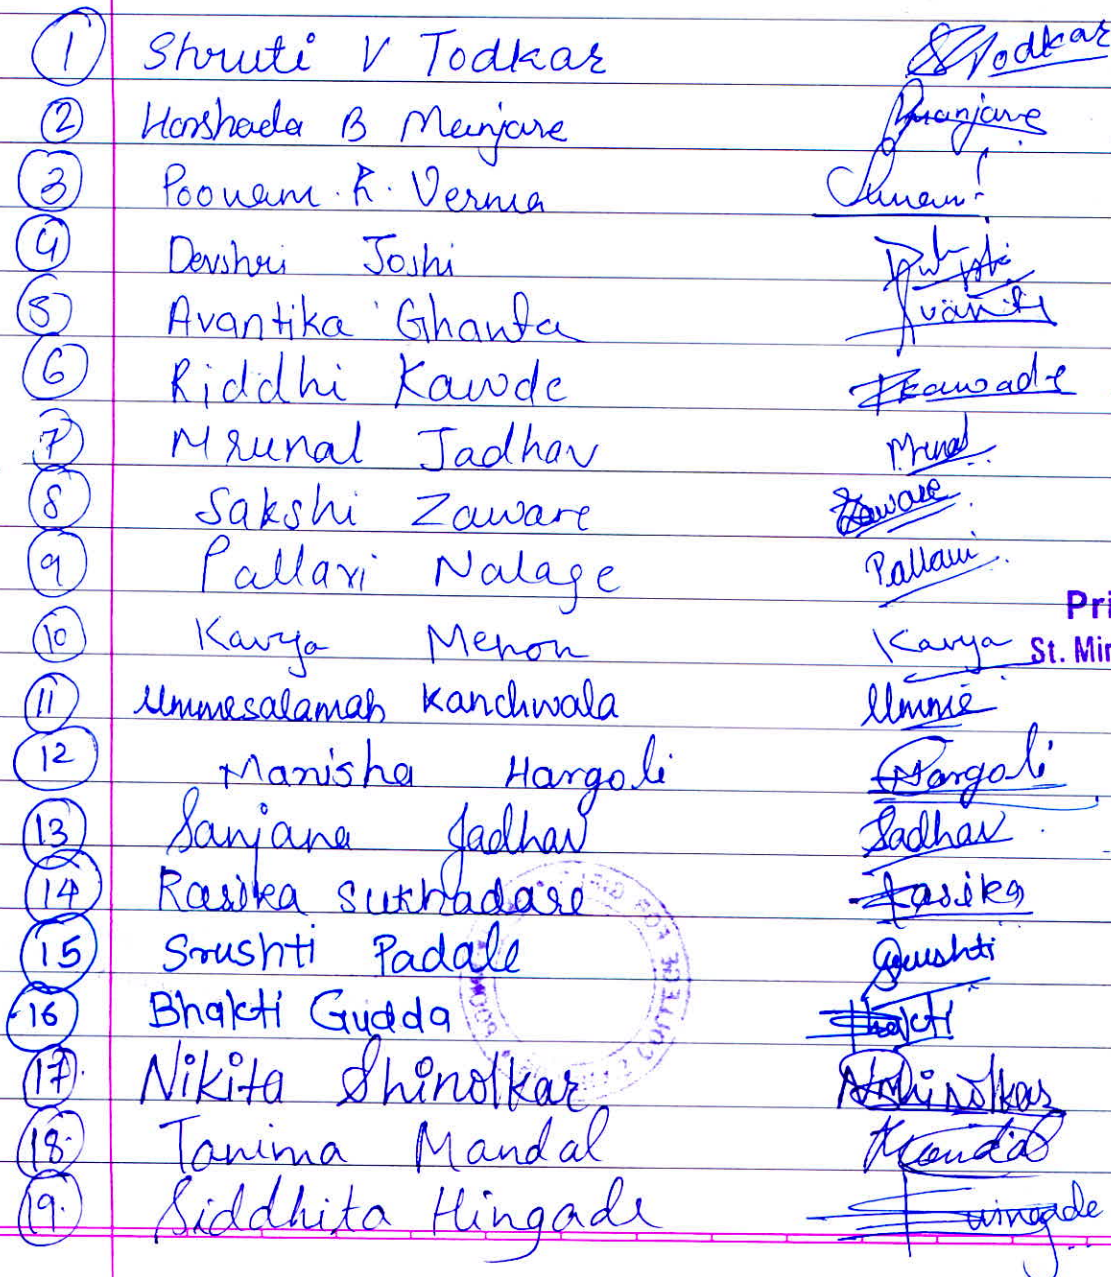 1 Shruti V Todkar STodkar
2 Harshada B Manjare Bmanjare
3 Poonam. R. Verma
4 Devshri Joshi
5 Avantika Ghanta Avanti
6 Riddhi Kawde RKawade
7 Mrunal Jadhav Mrunal
8 Sakshi Zaware Zaware
9 Pallavi Nalage Pallavi
Pri
10 Kavya Menon Kavya St. Mir
11 Ummesalamah Kanchwala Umme
12 Manisha Hargoli Hargoli
13 Sanjana Jadhav Jadhav
14 Rasika Sukhadare Rasika
15 Srushti Padale Srushti
16 Bhakti Gudda Bhakti
17. Nikita Shinolkar NShinolkar
18. Tanima Mandal Mandal
19. Siddhita Hingade Hingade